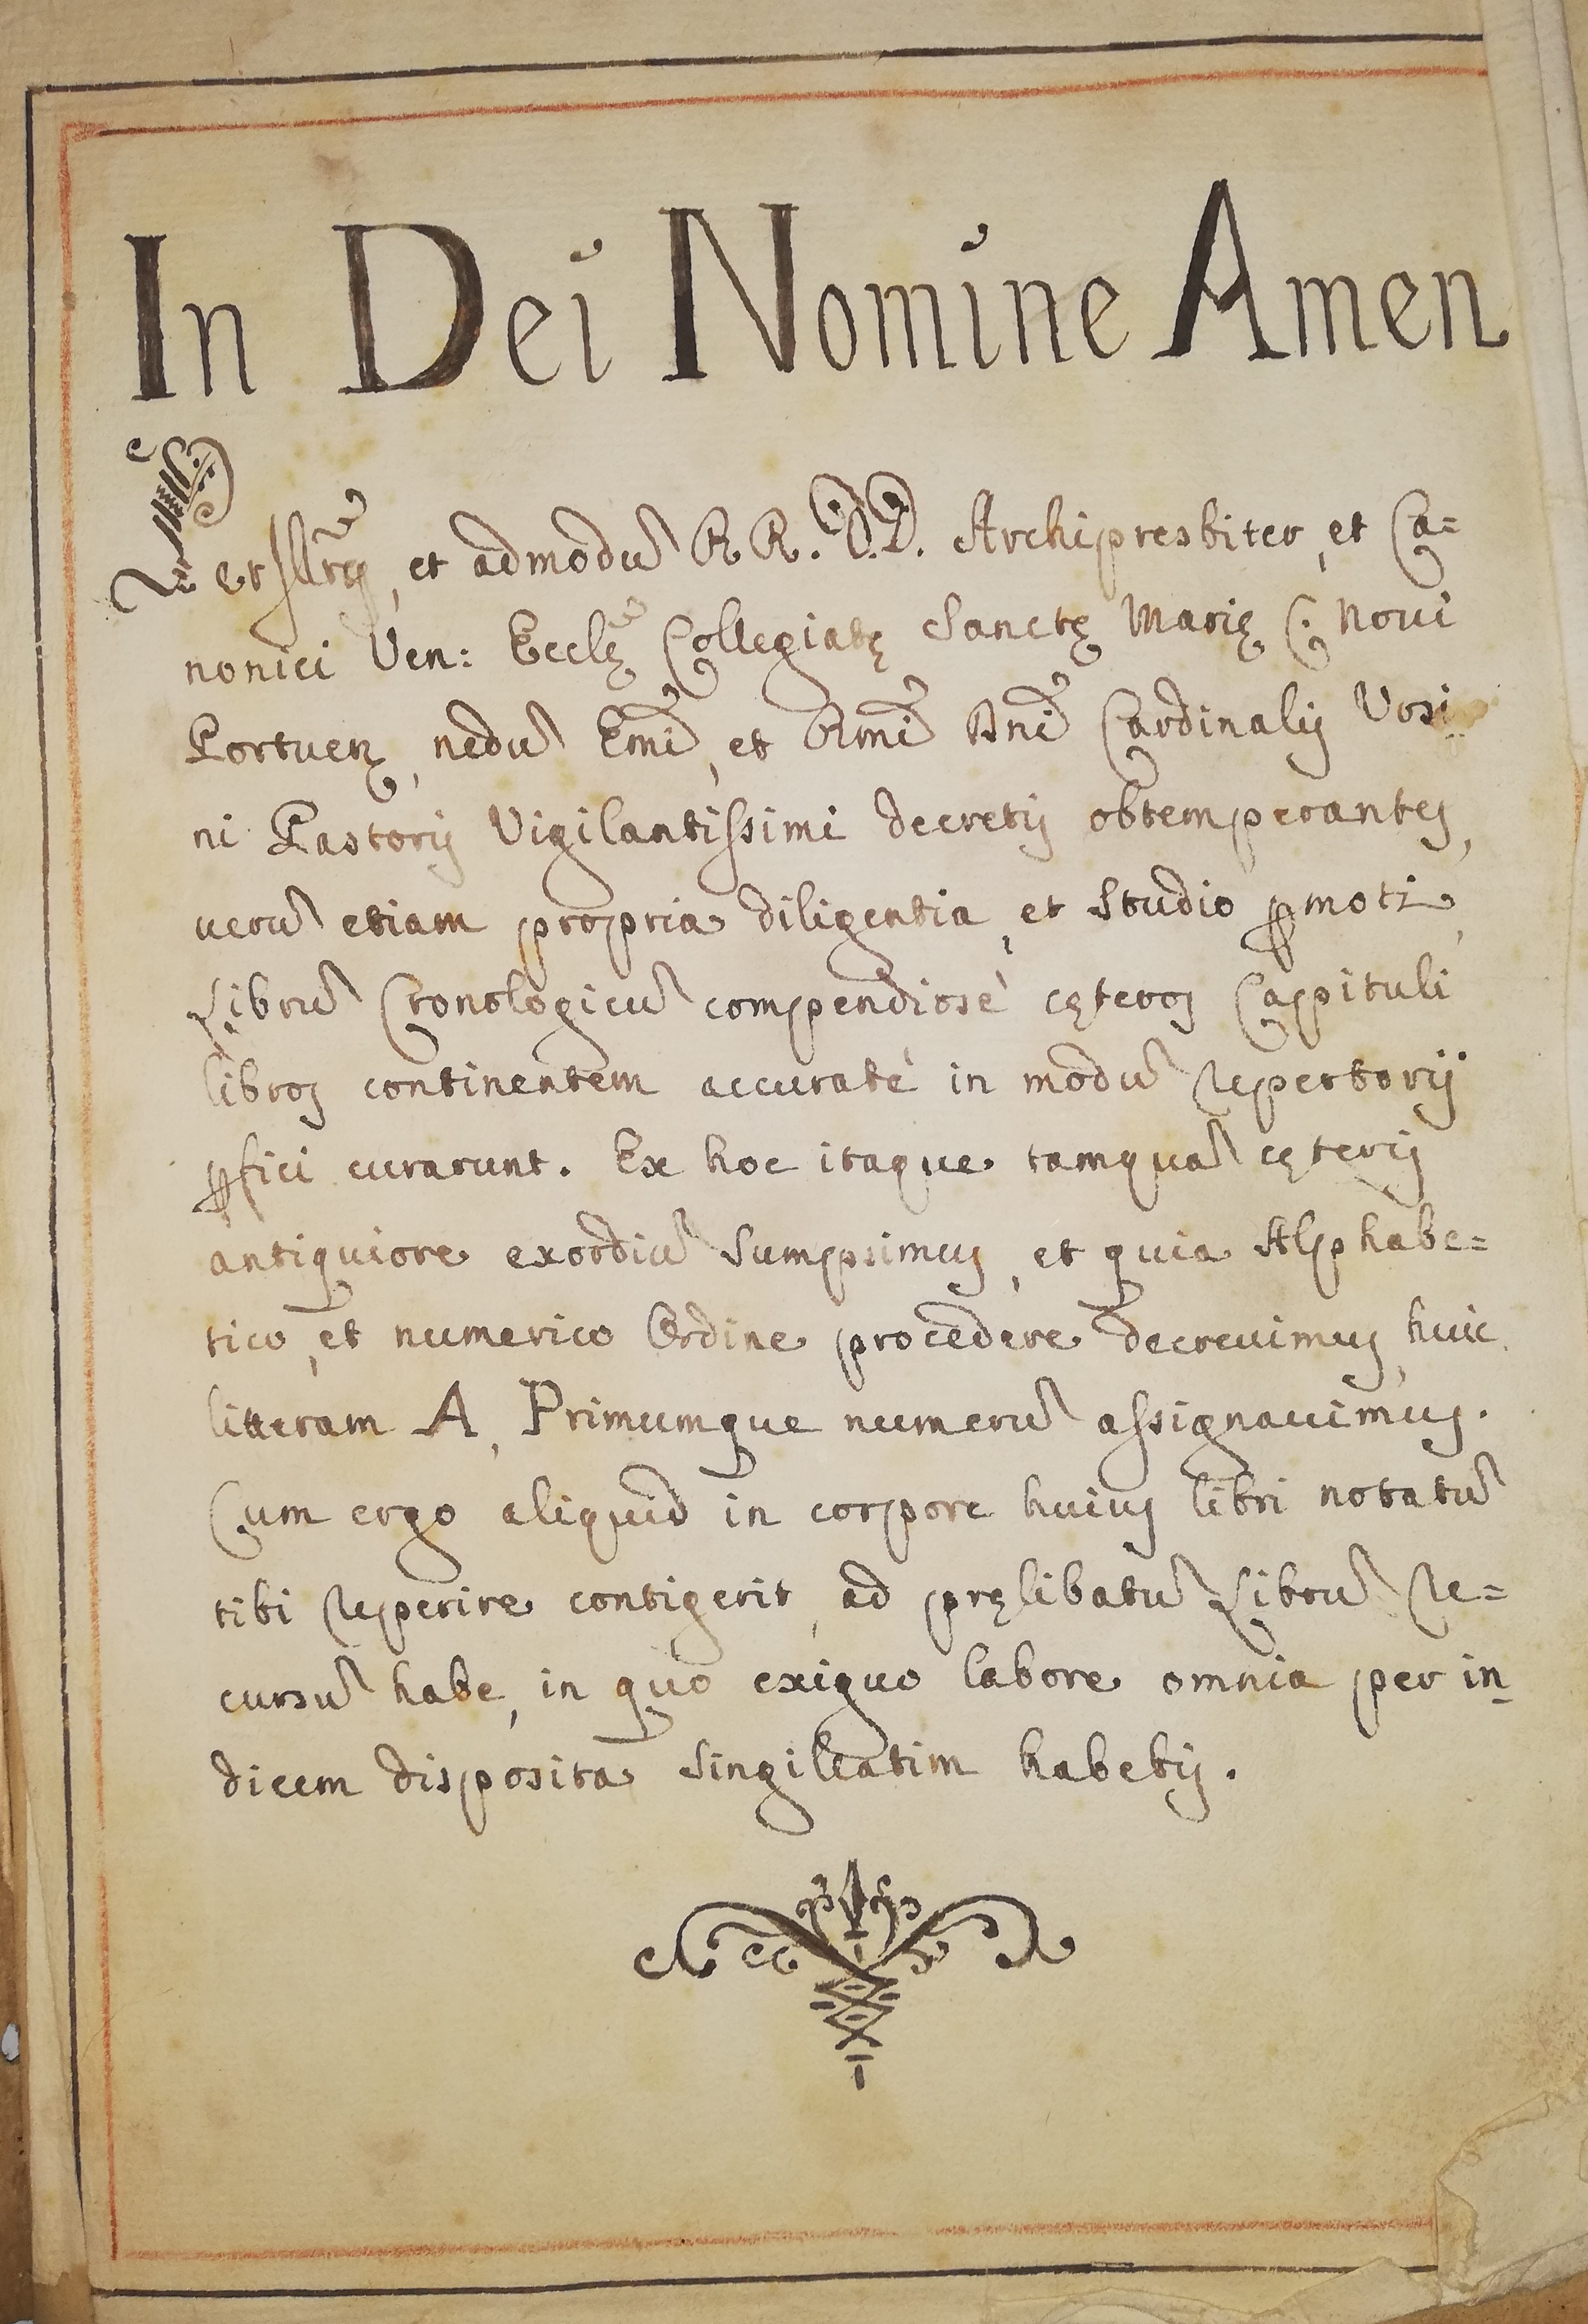 In Dei Nomine Amen
et admodũ RR. DD. Archipresbiter, et Ca=
nonici Ven: Ecclę Collegiatę Sanctę Marię C. Noui
Portuen, nedũ Emi, et Rmi Dni Cardinalis Vrsi
ni Pastoris Vigilantissimi decretis obtemperantes,
uerũ etiam propria diligentia, et studio ꝓmoti,
Librũ Cronologicũ compendiosè cęteros Capituli
libros continentem accuratè in modũ repertorij
ꝑfici curarunt. Ex hoc itaque tamquã cęteris
antiquiore exordiũ sumpsimus, et quia Alphabe=
tico, et numerico Ordine procedere decreuimus, huic
litteram A, Primumque numerũ assignauimus.
Cum ergo aliquid in corpore huius libri notatũ
tibi reperire contigerit, ad pręlibatũ Librũ re=
cursũ habe, in quo exiguo labore omnia per in
dicem disposita singillatim habetis.